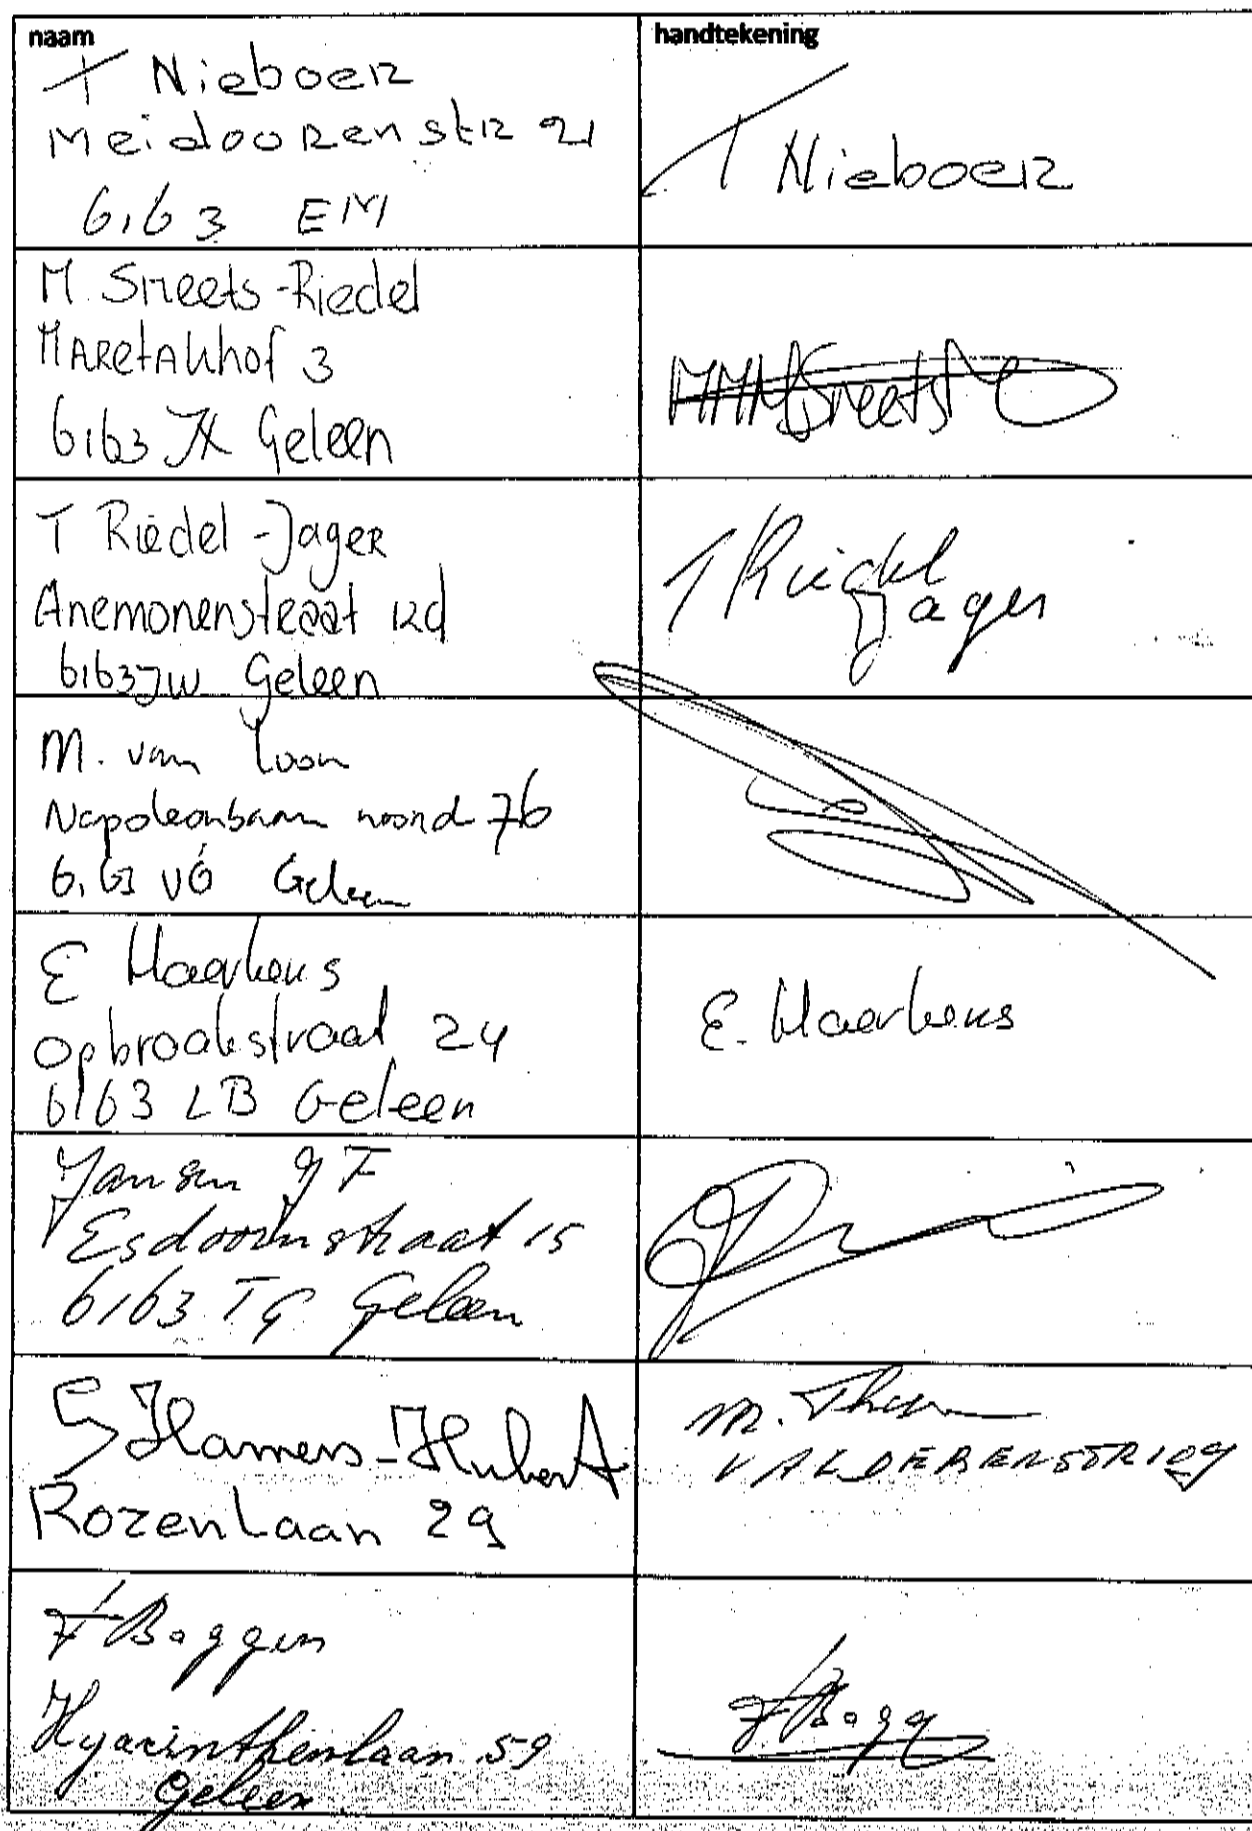 naam
T Nieboer
Meidoorenstr 21
6163 EM
handtekening
T Nieboer
M. Smeets-Riedel
Maretakhof 3
6163 JX Geleen
MMM Smeets
T Riedel-Jager
Anemonenstraat 12d
6163JW Geleen
T Riedel
Jager
M. van Loon
Napoleonbaan noord 76
6163 VG Geleen
E
Opbroekstraat 24
6163 LB Geleen
E.
Jansen J F
Esdoornstraat 15
6163 TG Geleen
G Hamers-Hubert
Rozenlaan 29
M.
F Baggen
Hyacinthenlaan 59
Geleen
F Bagg